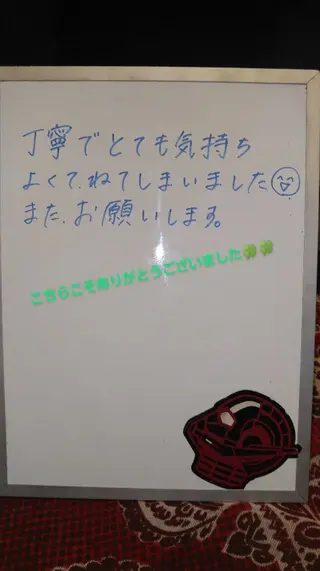 丁寧でとても気持ち
よくて、ねてしまいました
また、お願いします。
こちらこそありがとうございました